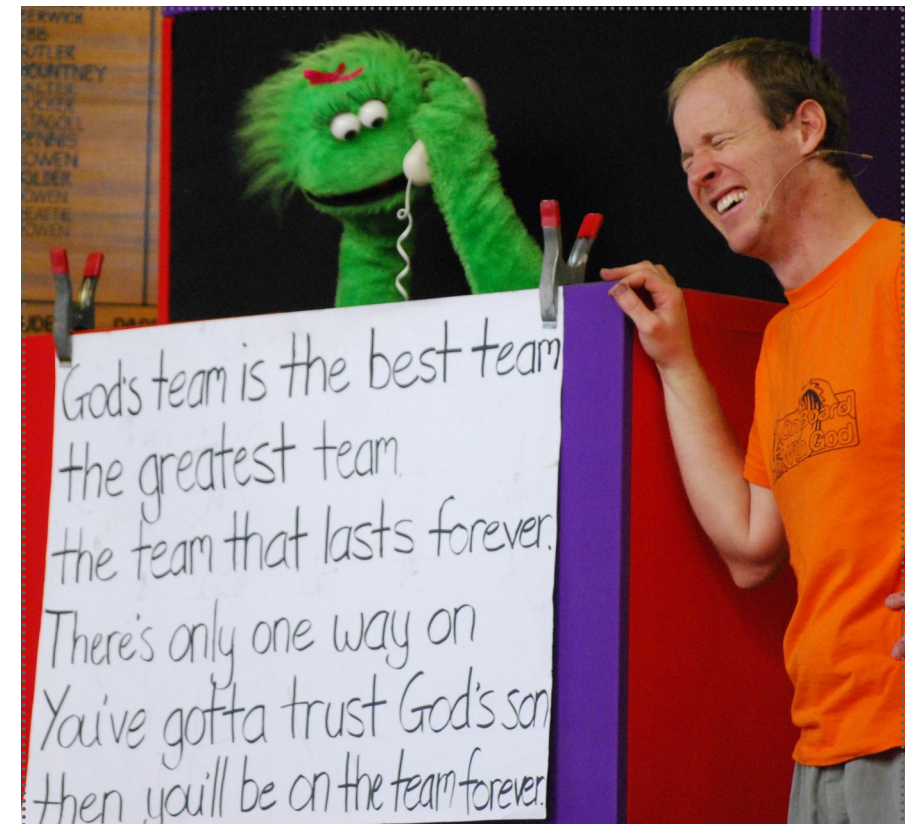 BUTLER
TUCKER
DENNIS
OWEN
OWEN
OWEN
God's team is the best team
the greatest team.
the team that lasts forever.
There's only one way on
You've gotta trust God's son
then you'll be on the team forever.
God